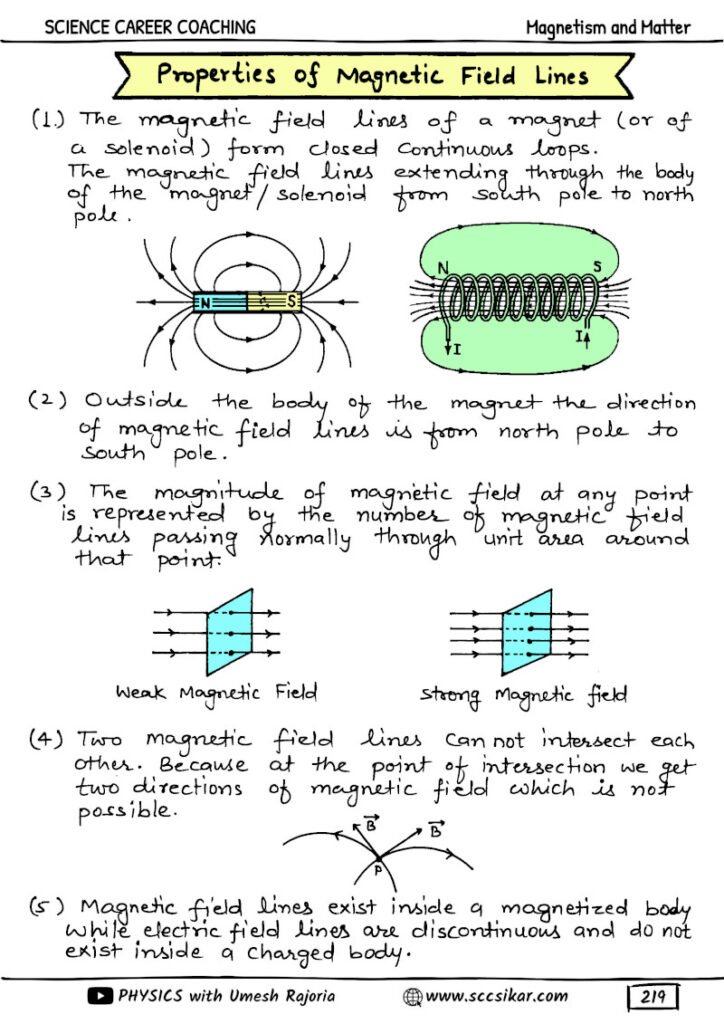 SCIENCE CAREER COACHING
Magnetism and Matter
Properties of Magnetic Field Lines
(1.) The magnetic field lines of a magnet (or of
a solenoid) form closed continuous loops.
The magnetic field lines extending through the body
of the magnet/solenoid from south pole to north
pole.
N S
N S
I I
(2) Outside the body of the magnet the direction
of magnetic field lines is from north pole to
south pole.
(3) The magnitude of magnetic field at any point
is represented by the number of magnetic field
lines passing normally through unit area around
that point.
Weak Magnetic Field
Strong Magnetic field
(4) Two magnetic field lines can not intersect each
other. Because at the point of intersection we get
two directions of magnetic field which is not
possible.
B⃗ B⃗
P
(5) Magnetic field lines exist inside a magnetized body
while electric field lines are discontinuous and do not
exist inside a charged body.
PHYSICS with Umesh Rajoria
www.sccsikar.com
219